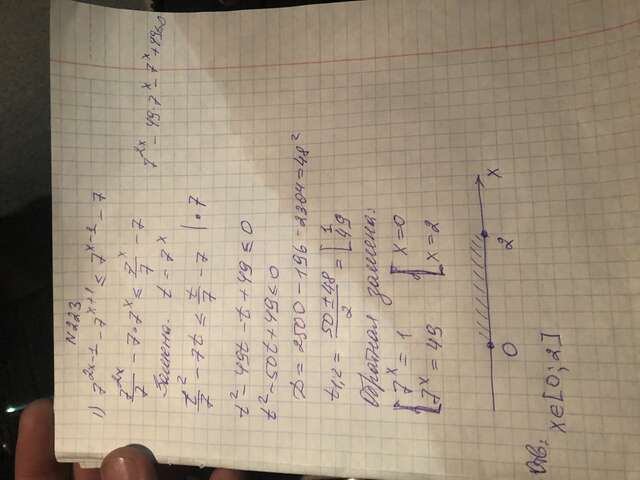 N223
1) 7^(2x-1) - 7^(x+1) ≤ 7^(x-1) - 7
7^(2x)/7 - 7·7^x ≤ 7^x/7 - 7
7^(2x) - 49·7^x - 7^x + 49 ≤ 0
Замена. t = 7^x
t²/7 - 7t ≤ t/7 - 7 | · 7
t² - 49t - t + 49 ≤ 0
t² - 50t + 49 ≤ 0
D = 2500 - 196 - 2304 = 48²
t1,2 = (50 ± 48)/2 = [1
49
Обратная замена:
[7^x = 1 [x = 0
7^x = 49 x = 2
0 2 x
Отв: x∈[0; 2]